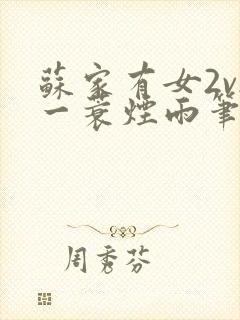 蘇家有女2v
一蓑煙雨筆
周秀芬